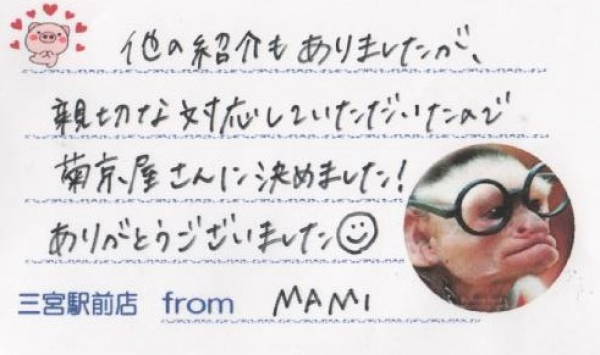 他の紹介もありましたが、
親切な対応していただいたので
菊京屋さんに決めました!
ありがとうございました☺
三宮駅前店 from MAMI